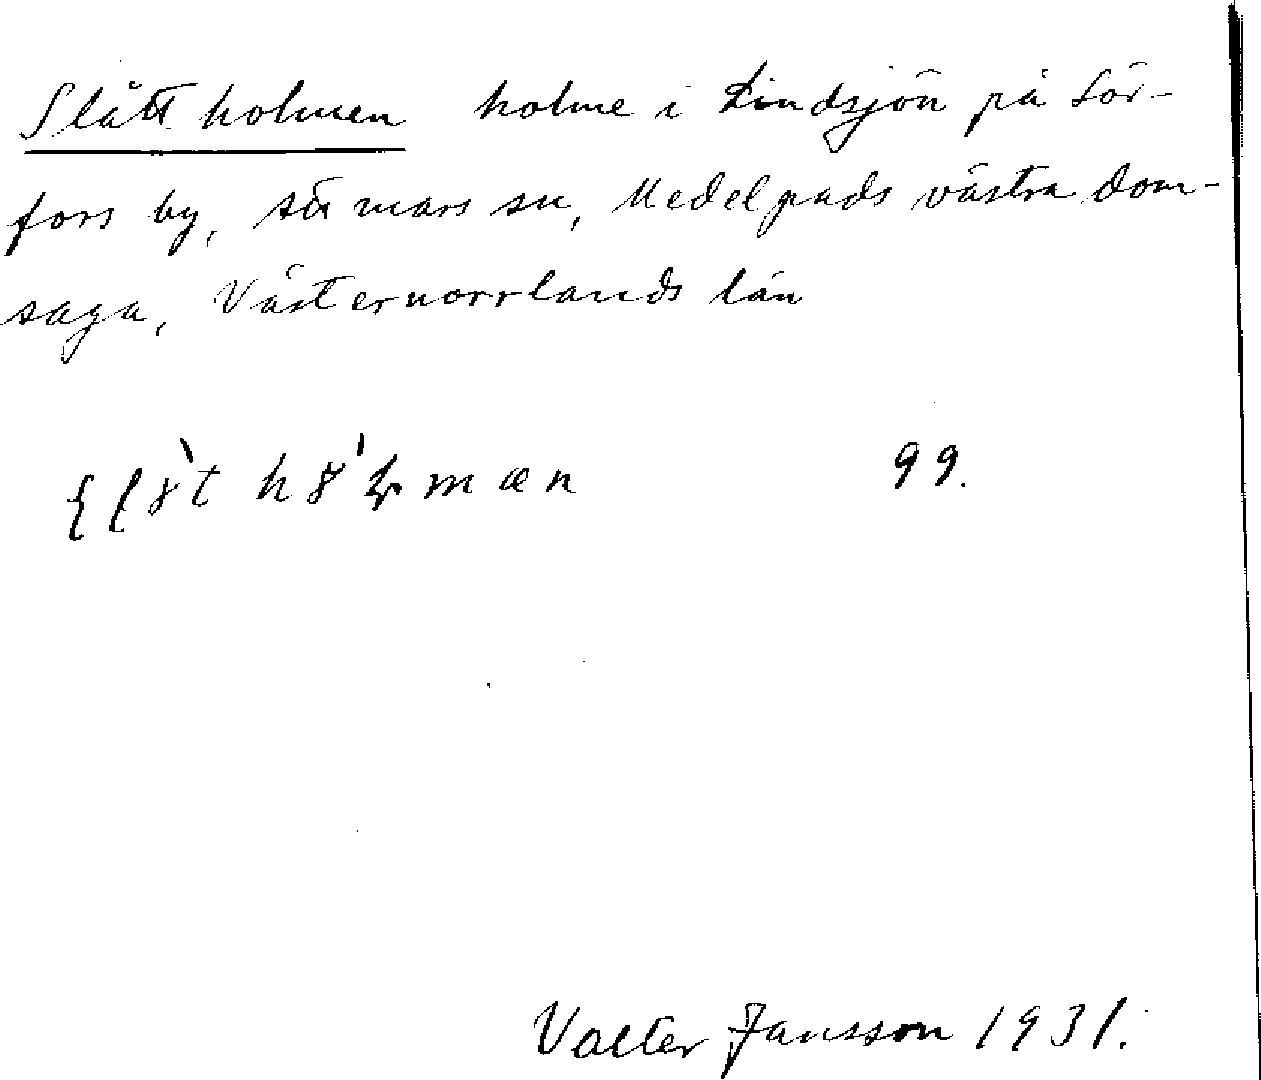 Slåttholmen holme i Lindsjön på Sör-
fors by, Attmars sn, Medelpads västra dom-
saga, Västernorrlands län
99.
Valter Jansson 1931.